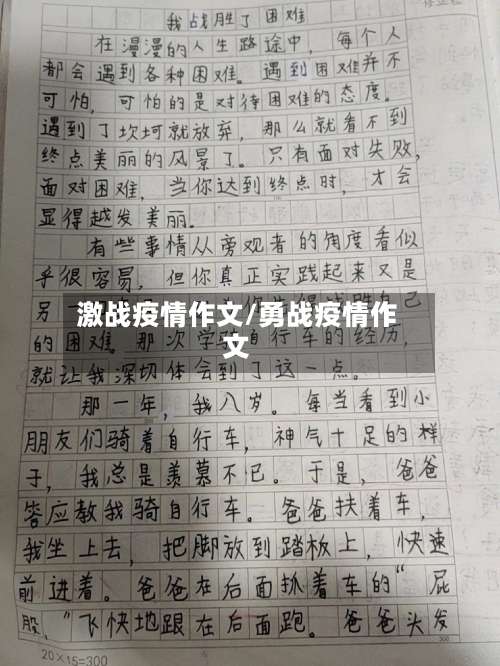 我战胜了困难
在漫漫的人生路途中，每个人
都会遇到各种困难。遇到困难并不
可怕，可怕的是对待困难的态度。
遇到了坎坷就放弃，那么就看不到
终点美丽的风景了。只有面对失败，
面对困难，当你达到终点时，才会
显得越发美丽。
有些事情从旁观者的角度看似
乎很容易，但你真正实践起来又是
另
自己
激战疫情作文/勇战疫情作
文
的困难。那次学骑自行车的经历，
就让我深切体会到了这一点。
那一年，我八岁。每当看到小
朋友们骑着自行车，神气十足的样
子，我总是羡慕不已。于是，爸爸
答应教我骑自行车。爸爸扶着车，
我坐上去，把脚放到踏板上，快速
前进着。爸爸在后面抓着车的“屁
股”飞快地跟在后面跑。爸爸头发
20×15=300